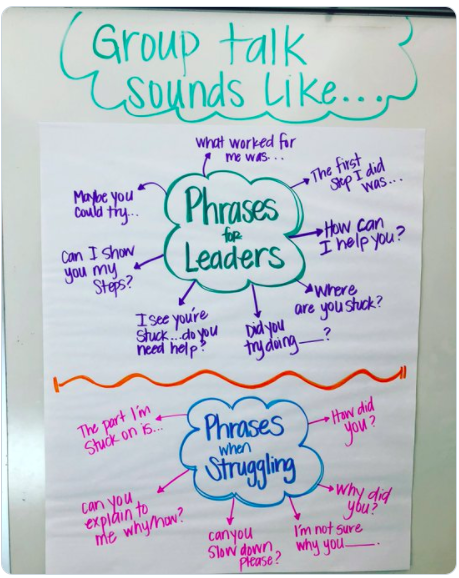 Group talk
sounds like...
what worked for
me was...
The first
step I did
was...
Maybe you
could try...
Phrases
for
Leaders
How can
I help you?
Can I show
you my
steps?
Where
are you stuck?
I see you're
stuck...do you
need help?
Did you
try doing ___?
The part I'm
stuck on is...
How did
you?
Phrases
when
Struggling
can you
explain to
me why/how?
Why did
you?
can you
slow down
please?
I'm not sure
why you ___.